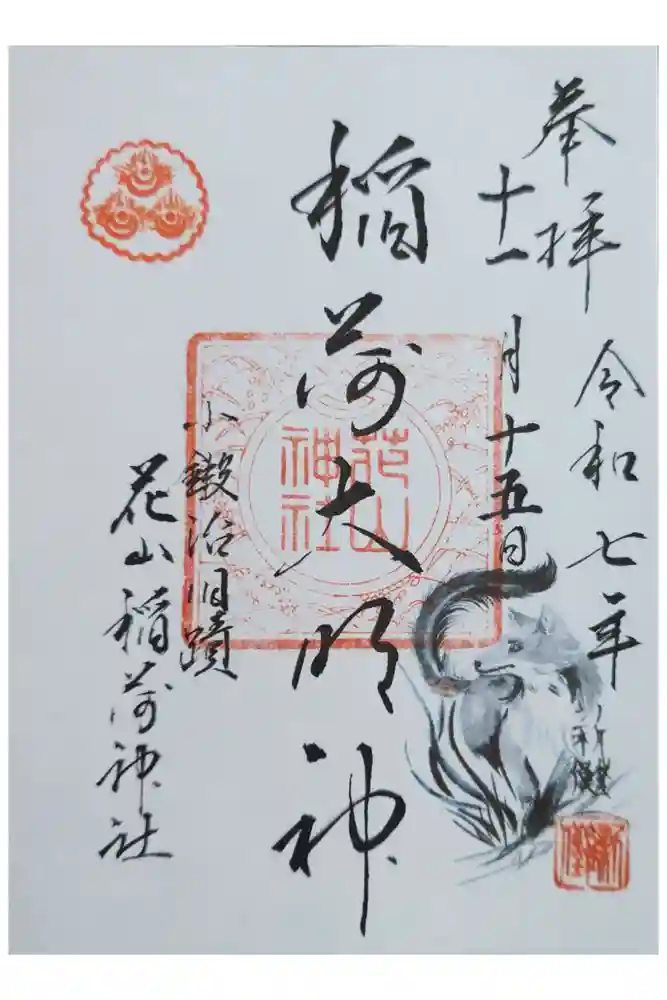 奉拝
令和七年
十一月十五日
稲荷大明神
花山
神社
小鍛冶旧蹟
花山稲荷神社